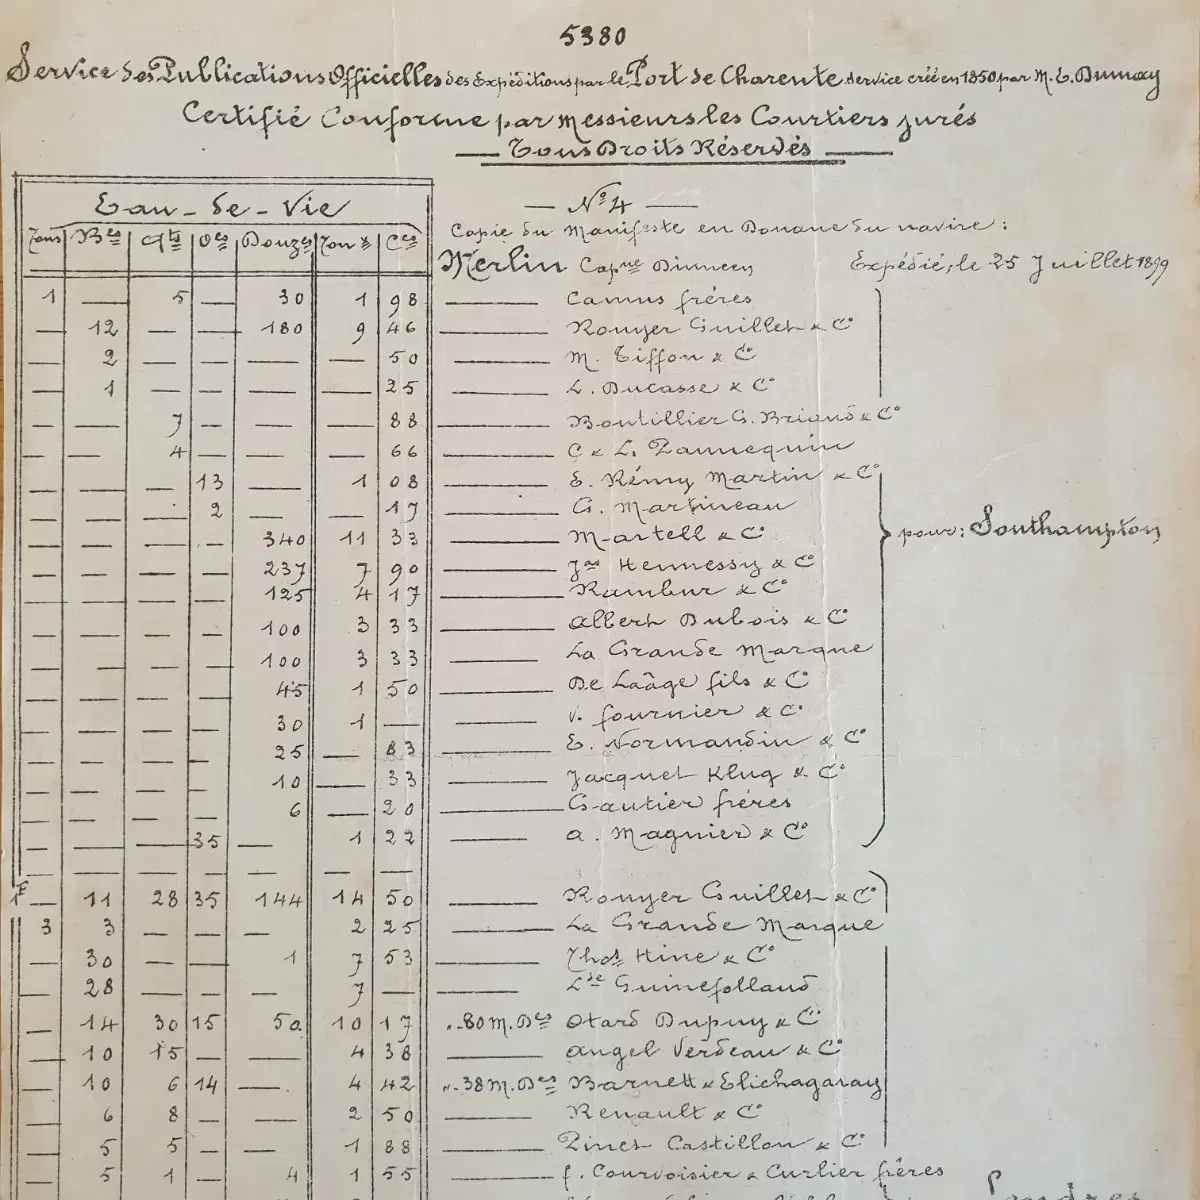 5380
Service des Publications Officielles des Expéditions par le Port de Charente service créé en 1850 par M. E. Dumay
Certifié Conforme par Messieurs les Courtiers jurés
Tous Droits Réservés
Eau-de-Vie
Nº 4
Copie du Manifeste en Douane du navire:
Tons Bes Qts Oes Douzes Tonx Ces
Merlin Capne Expédié, le 25 Juillet 1899
1 — 5 — 30 1 98 — Camus frères
— 12 — — 180 9 46 — Rouyer Guillet & Cº
— 2 — — — — 50 — M. Tiffon & Cº
— 1 — — — — 25 — L. Ducasse & Cº
— — 7 — — — 88 — Boutillier G. Briand & Cº
— — 4 — — — 66 — C & L. Pannequin
— — — 13 — 1 08 — E. Rémy Martin & Cº
— — — 2 — — 17 — G. Martineau
— — — — 340 11 33 — Martell & Cº
pour: Southampton
— — — — 237 7 90 — Jas Hennessy & Cº
— — — — 125 4 17 — Rambur & Cº
— — — — 100 3 33 — Albert Dubois & Cº
— — — — 100 3 33 — La Grande Marque
— — — — 45 1 50 — De Laâge fils & Cº
— — — — 30 1 — — V. Fournier & Cº
— — — — 25 — 83 — E. Normandin & Cº
— — — — 10 — 33 — Jacquet Klug & Cº
— — — — 6 — 20 — Gautier frères
— — — 35 — 1 22 — A. Magnier & Cº
— — — — — — —
1F — 11 28 35 144 14 50 — Rouyer Guillet & Cº
3 3 — — — 2 25 — La Grande Marque
— 30 — — 1 7 53 — Thos Hine & Cº
— 28 — — — 7 — — Lde Guinefolland
— 14 30 15 50 10 17 „80 M. Des Otard Dupuy & Cº
— 10 15 — — 4 38 — Angel Verdeau & Cº
— 10 6 14 — 4 42 „38 M. Des Barnett & Elichagaray
— 6 8 — — 2 50 — Renault & Cº
— 5 5 — — 1 88 — Pinet Castillon & Cº
— 5 1 — 4 1 55 — F. Courvoisier & Curlier frères
Londres